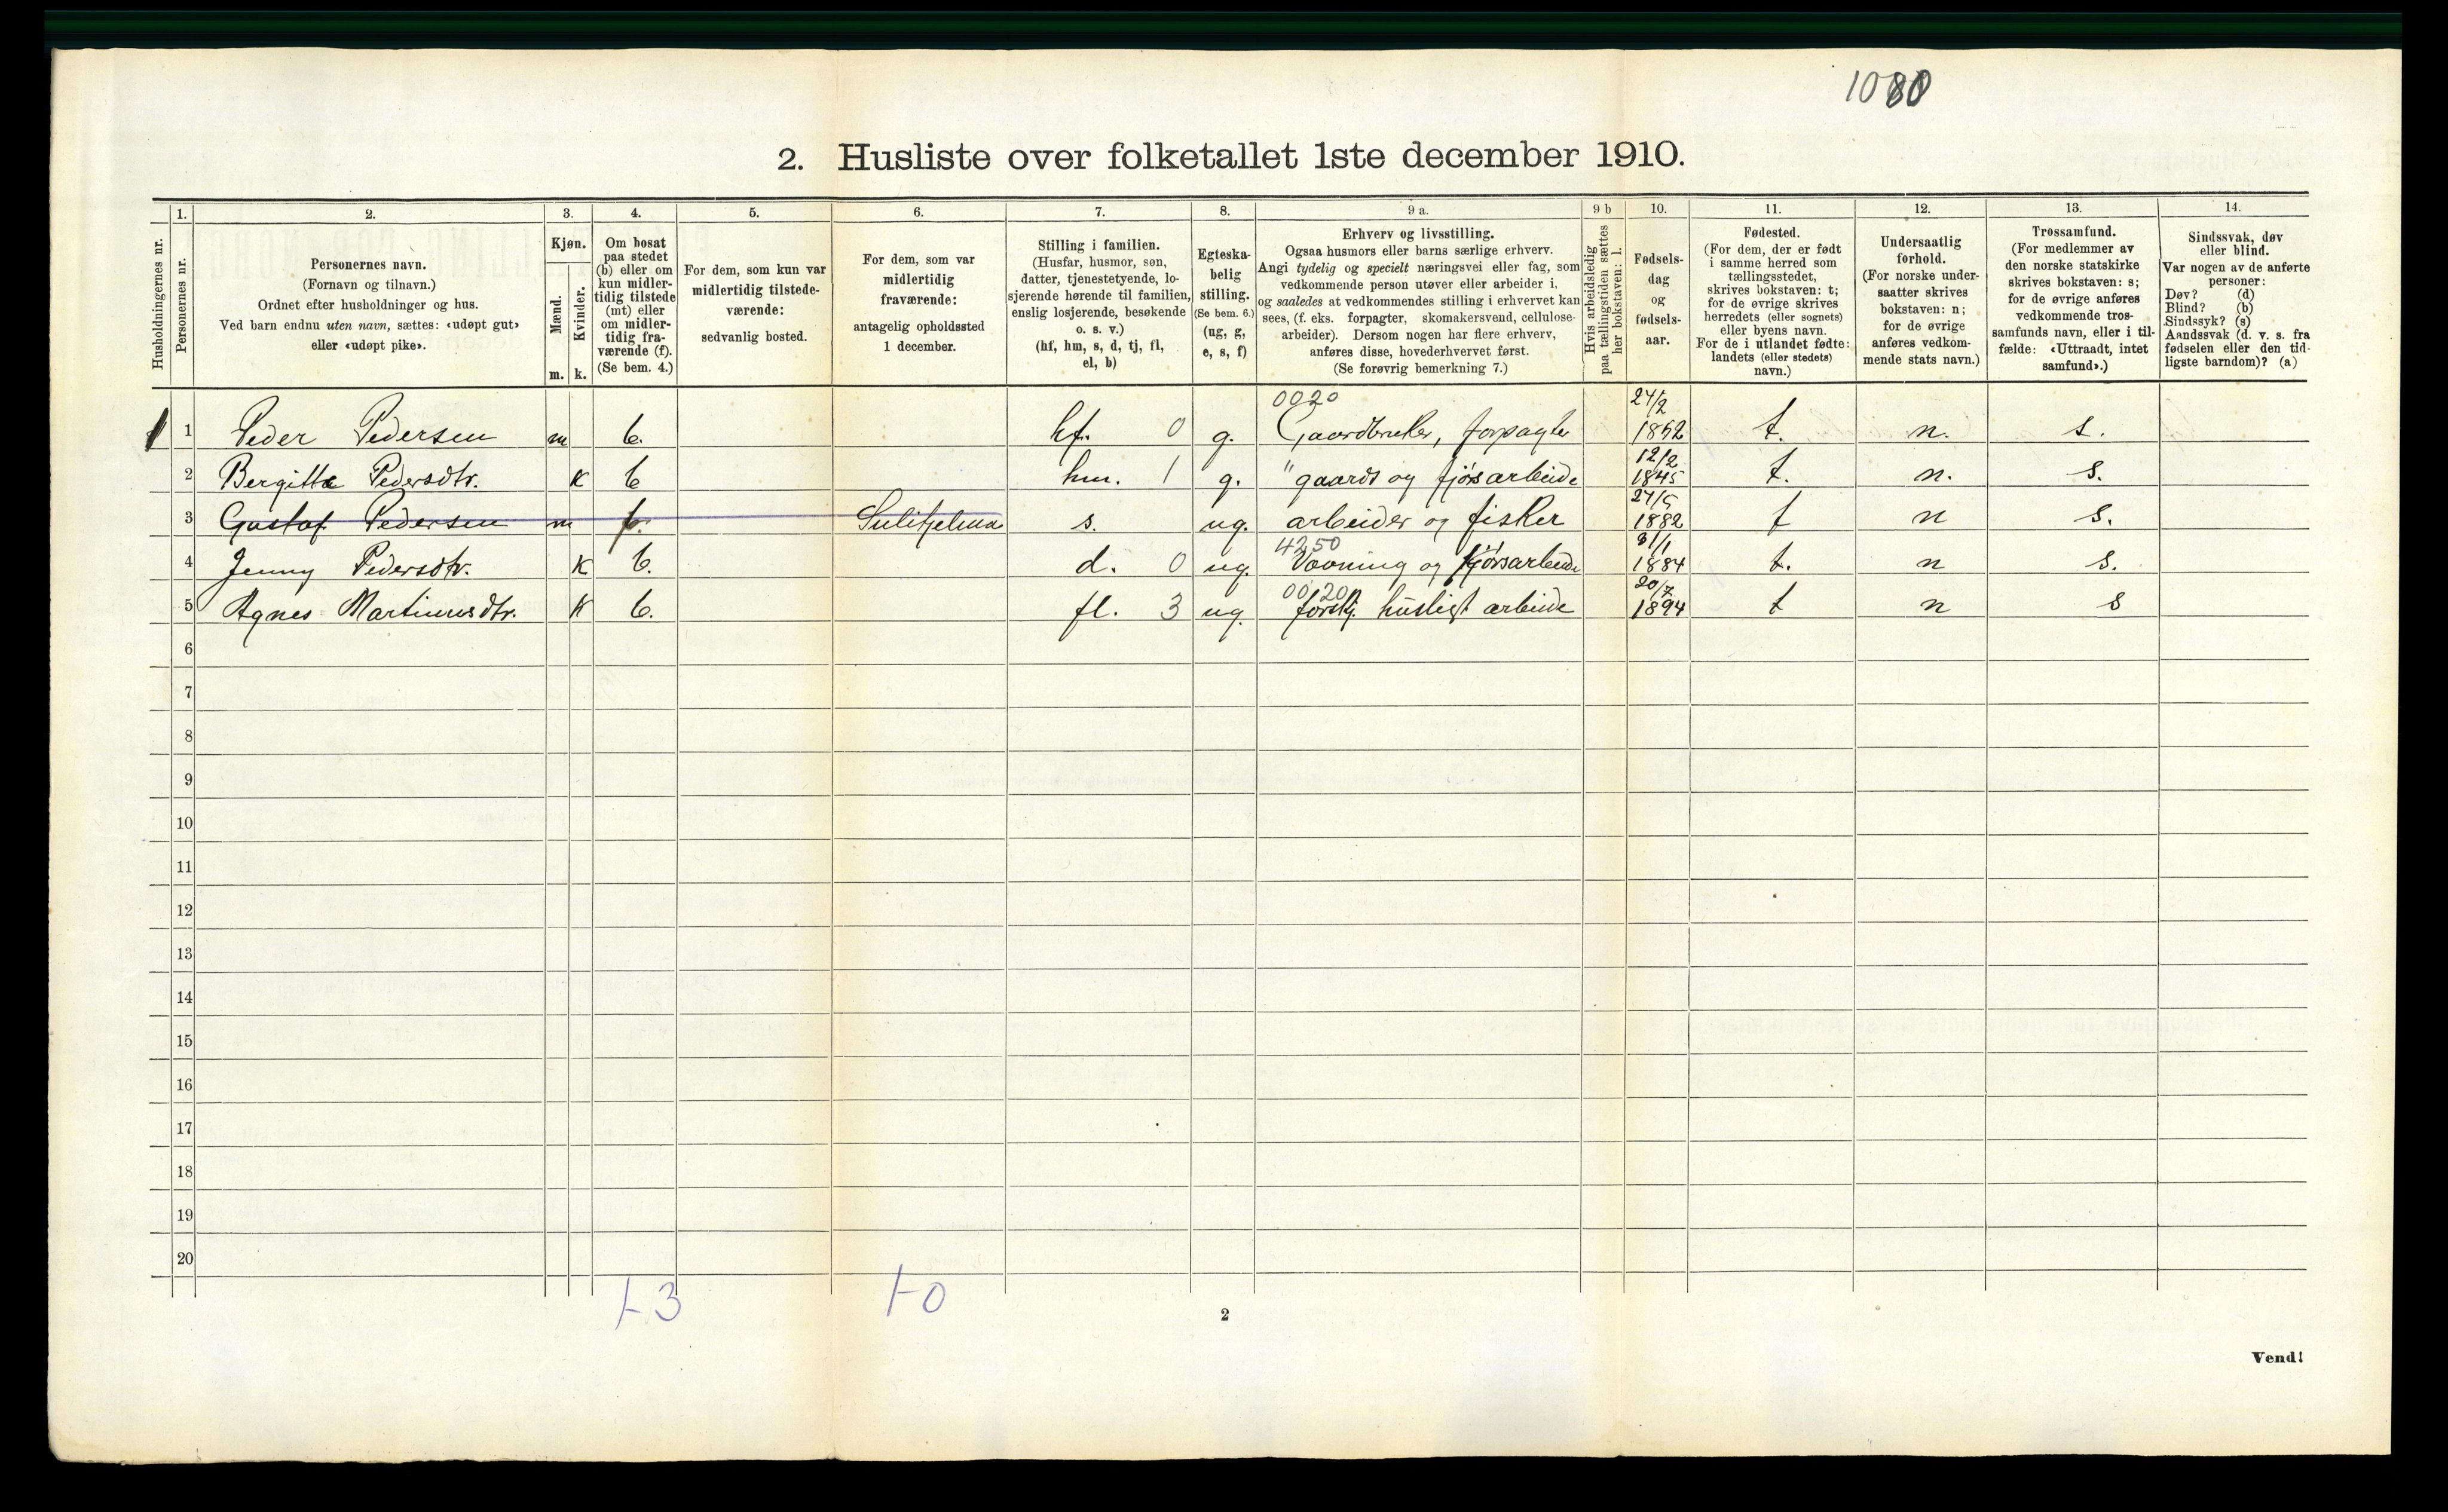 1080
2. Husliste over folketallet 1ste december 1910.
Husholdningernes nr.
1.
Personernes nr.
2.
Personernes navn.
(Fornavn og tilnavn.)
Ordnet efter husholdninger og hus.
Ved barn endnu uten navn, sættes: «udøpt gut»
eller «udøpt pike».
3.
Kjøn.
Mænd.
Kvinder.
m. k.
4.
Om bosat
paa stedet
(b) eller om
kun midler-
tidig tilstede
(mt) eller
om midler-
tidig fra-
værende (f).
(Se bem. 4.)
5.
For dem, som kun var
midlertidig tilstede-
værende:
sedvanlig bosted.
6.
For dem, som var
midlertidig
fraværende:
antagelig opholdssted
1 december.
7.
Stilling i familien.
(Husfar, husmor, søn,
datter, tjenestetyende, lo-
sjerende hørende til familien,
enslig losjerende, besøkende
o. s. v.)
(hf, hm, s, d, tj, fl,
el, b)
8.
Egteska-
belig
stilling.
(Se bem. 6.)
(ug, g,
e, s, f)
9 a.
Erhverv og livsstilling.
Ogsaa husmors eller barns særlige erhverv.
Angi tydelig og specielt næringsvei eller fag, som
vedkommende person utøver eller arbeider i,
og saaledes at vedkommendes stilling i erhvervet kan
sees, (f. eks. forpagter, skomakersvend, cellulose-
arbeider). Dersom nogen har flere erhverv,
anføres disse, hovederhvervet først.
(Se forøvrig bemerkning 7.)
9 b
Hvis arbeidsledig
paa tællingstiden sættes
her bokstaven: l.
10.
Fødsels-
dag
og
fødsels-
aar.
11.
Fødested.
(For dem, der er født
i samme herred som
tællingsstedet,
skrives bokstaven: t;
for de øvrige skrives
herredets (eller sognets)
eller byens navn.
For de i utlandet fødte:
landets (eller stedets)
navn.)
12.
Undersaatlig
forhold.
(For norske under-
saatter skrives
bokstaven: n;
for de øvrige
anføres vedkom-
mende stats navn.)
13.
Trossamfund.
(For medlemmer av
den norske statskirke
skrives bokstaven: s;
for de øvrige anføres
vedkommende tros-
samfunds navn, eller i til-
fælde: «Uttraadt, intet
samfund».)
14.
Sindssvak, døv
eller blind.
Var nogen av de anførte
personer:
Døv? (d)
Blind? (b)
Sindssyk? (s)
Aandssvak (d. v. s. fra
fødselen eller den tid-
ligste barndom)? (a)
0020 24/2
1 1 Peder Pedersen m b. hf. 0 g. Gaardbruker, forpagter 1852 t. n. s.
12/2
2 Bergitte Pedersdtr. K b hm. 1 g. " gaards og fjøsarbeide 1845 t. n. s.
24/5
3 Gustaf Pedersen m f. Sulitjelma s. ug. arbeider og fisker 1882 t n s.
4250 31/1
4 Jenny Pedersdtr. K b. d. 0 ug. Vævning og fjøsarbeide 1884 t. n s.
0020 20/7
5 Agnes Martinusdtr. K b. fl. 3 ug. forskj. husligt arbeide 1894 t n s
6
7
8
9
10
11
12
13
14
15
16
17
18
19
20
1-3 1-0
2
Vend!